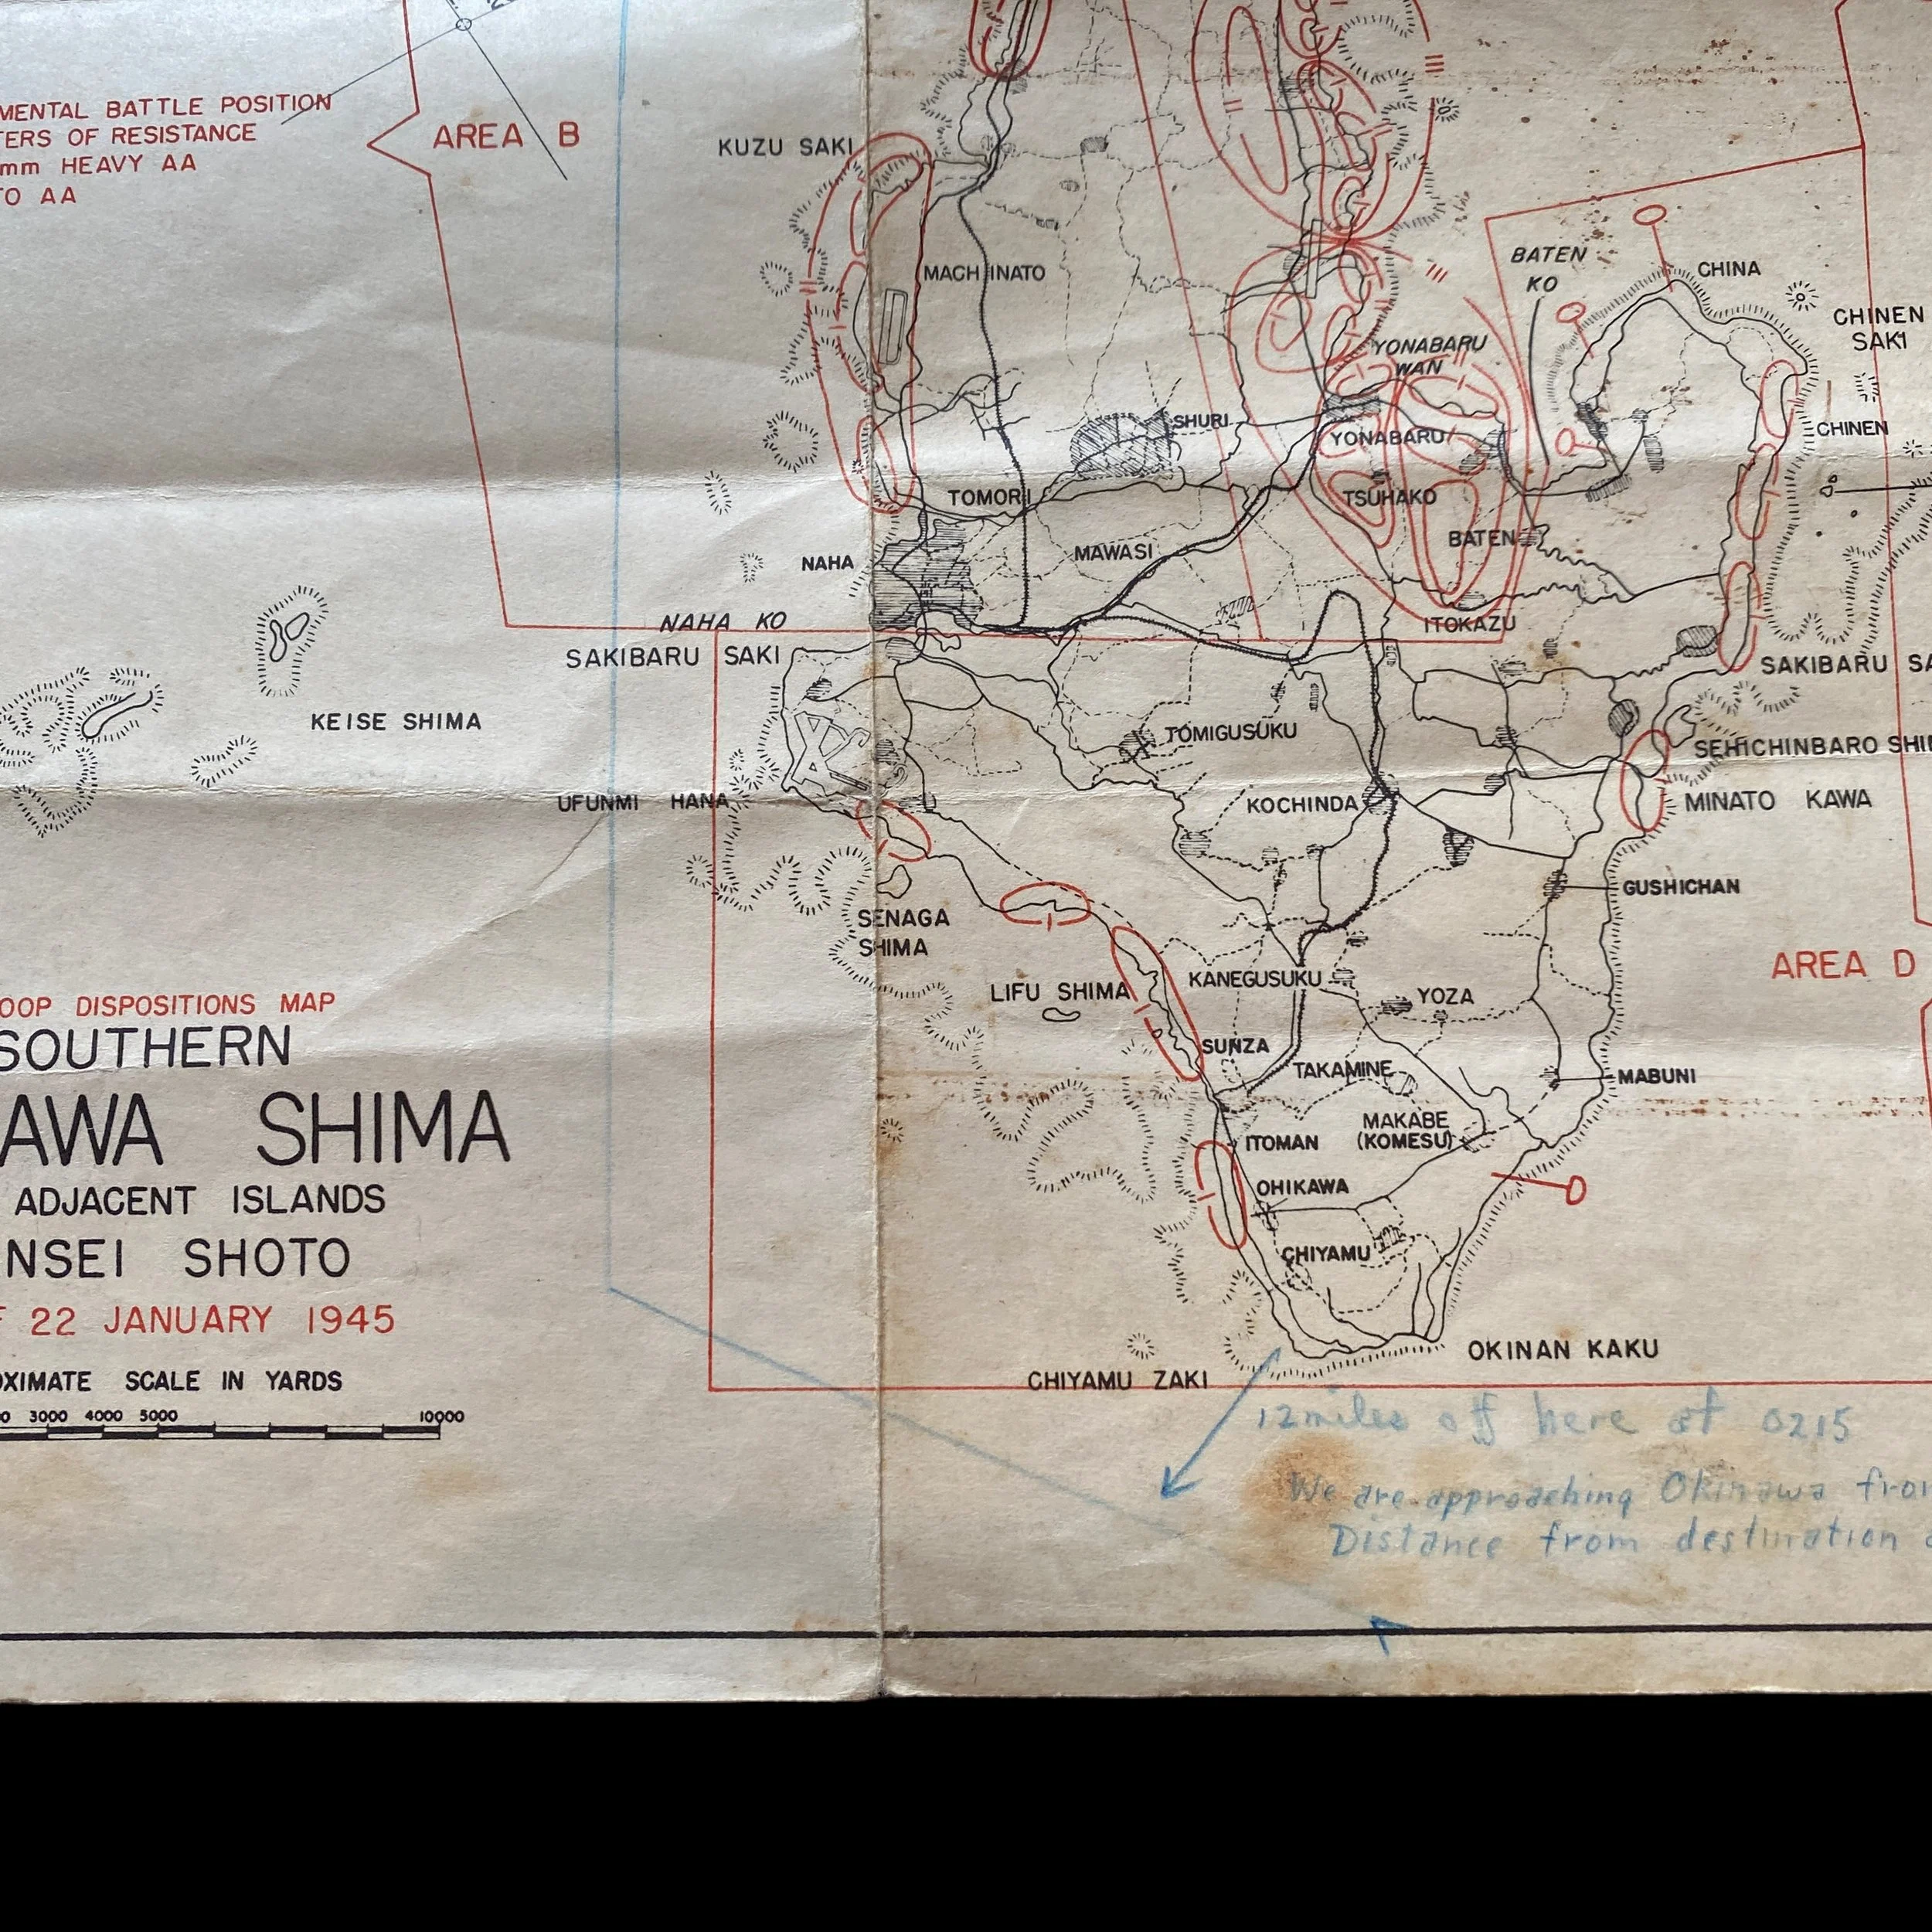 MENTAL BATTLE POSITION
TERS OF RESISTANCE
mm HEAVY AA
TO AA
AREA B
KUZU SAKI
MACHINATO
BATEN
KO
CHINA
CHINEN
SAKI
YONABARU
WAN
SHURI
YONABARU
CHINEN
TOMORI
TSUHAKO
NAHA
MAWASI
BATEN
NAHA KO
ITOKAZU
SAKIBARU SAKI
SAKIBARU SA
KEISE SHIMA
TOMIGUSUKU
SEHICHINBARO SHI
UFUNMI HANA
KOCHINDA
MINATO KAWA
GUSHICHAN
SENAGA
SHIMA
AREA D
LIFU SHIMA
KANEGUSUKU
YOZA
OOP DISPOSITIONS MAP
SOUTHERN
SUNZA
TAKAMINE
MABUNI
AWA SHIMA
MAKABE
(KOMESU)
ITOMAN
ADJACENT ISLANDS
OHIKAWA
NSEI SHOTO
CHIYAMU
F 22 JANUARY 1945
OKINAN KAKU
OXIMATE SCALE IN YARDS
CHIYAMU ZAKI
0 3000 4000 5000 10000
12 miles off here at 0215
We are approaching Okinawa from
Distance from destination